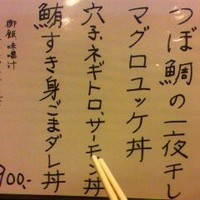 つぼ鯛の一夜干し
マグロユッケ丼
穴子、ネギトロ、サーモン丼
鮪すき身ごまダレ丼
900.-
御飯 味噌汁